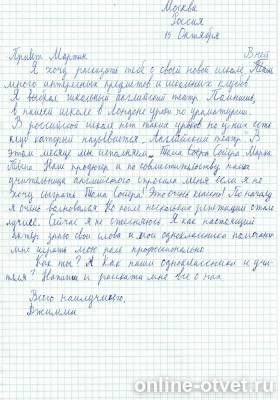 Москва
Россия
15 Октября
Привет Мартин
Я хочу рассказать тебе о своей новой школе. Там
много интересных предметов и школьных клубов
Я выбрал школьный английский театр. Помнишь,
в нашей школе в Лондоне урок по драматургии.
В российской школе нет таких уроков но у них есть
клуб который называется, Английский театр. В
этом месяце мы исполняем Тома Сойера Марка
Твена. Наш продюсер и по совместительству наша
учительница английского спросила меня если я
хочу сыграть Тома Сойера! Это очень весело! По началу
я очень волновался Но после нескольких репетиций стало
лучше. Сейчас я не стесняюсь. Я как настоящий
актёр знаю свои слова и мои одноклассники помогают
мне играть мою роль профессионально
Как ты? А как наши одноклассники и учи-
теля? Напиши и расскажи мне все о них.
Всего наилучшего,
Джимми
online-otvet.ru